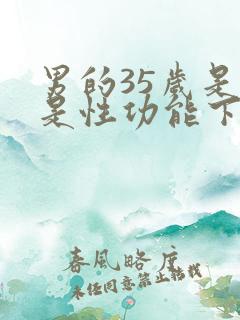 男的35岁是
是性功能下
春風略度
未经同意禁止转载